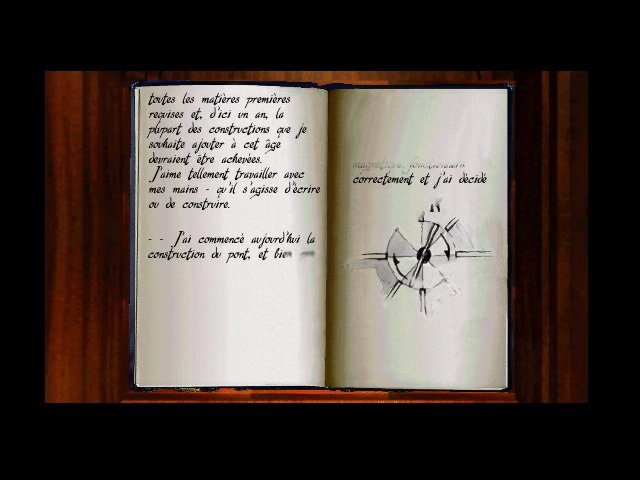 toutes les matières premières
requises et, d'ici un an, la
plupart des constructions que je
souhaite ajouter à cet âge
devraient être achevées.
J'aime tellement travailler avec
mes mains - qu'il s'agisse d'écrire
ou de construire.
- - J'ai commencé aujourd'hui la
construction du pont, et
correctement et j'ai décidé